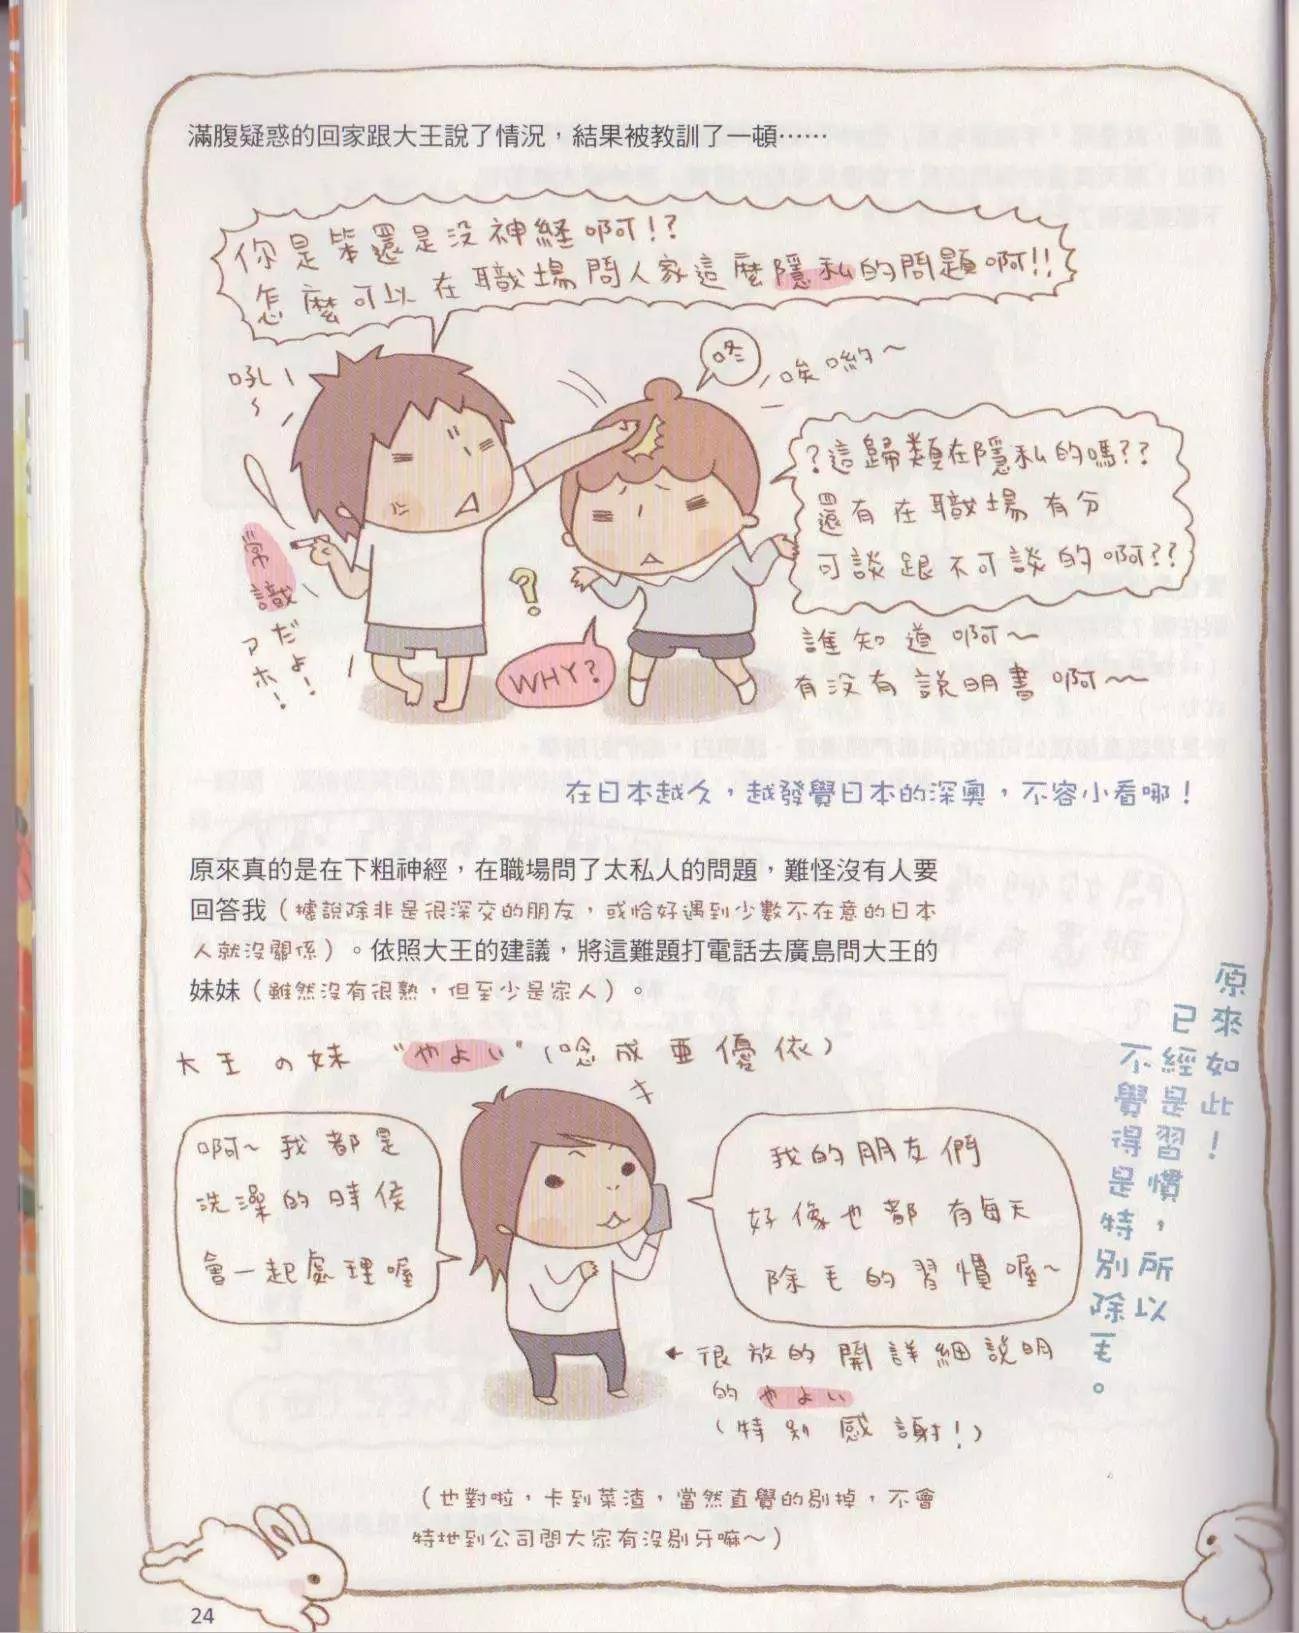 滿腹疑惑的回家跟大王說了情況，結果被教訓了一頓……
你是笨還是沒神経啊!?
怎麼可以在職場問人家這麼隱私的問題啊!!
吼～
咚
唉喲～
?這歸類在隱私的嗎??
還有在職場有分
可談跟不可談的啊??
常識だよ!
アホ!
?
WHY?
誰知道啊～
有沒有説明書啊～～
在日本越久，越發覺日本的深奧，不容小看哪！
原來真的是在下粗神經，在職場問了太私人的問題，難怪沒有人要
回答我（據說除非是很深交的朋友，或恰好遇到少數不在意的日本
人就沒關係）。依照大王的建議，將這難題打電話去廣島問大王的
妹妹（雖然沒有很熟，但至少是家人）。
大王の妹 "やよい"(唸成亜優依)
啊～我都是
洗澡的時候
會一起處理喔
我的朋友們
好像也都有每天
除毛的習慣喔～
原來如此！
已經是習慣，所以
不覺得是特別除毛。
←很放的開詳細説明
的やよい
(特別感謝!)
（也對啦，卡到菜渣，當然直覺的剔掉，不會
特地到公司問大家有沒剔牙嘛～）
24